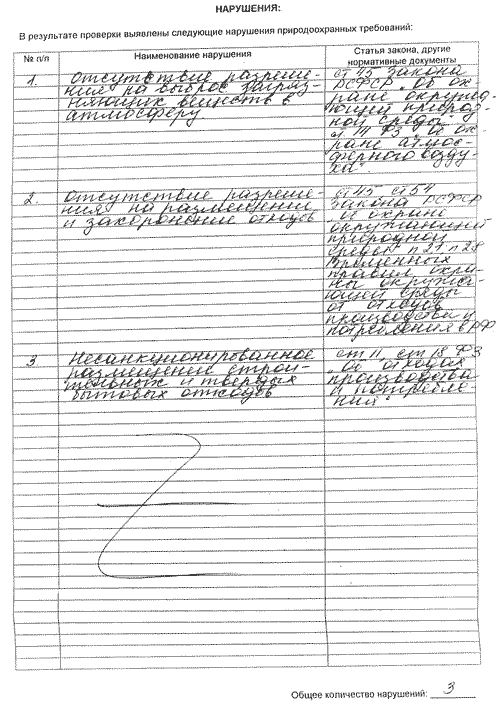 НАРУШЕНИЯ:
В результате проверки выявлены следующие нарушения природоохранных требований:
№ п/п
Наименование нарушения
Статья закона, другие
нормативные документы
1.
Отсутствие разреше-
ния на выброс загряз-
няющих веществ в
атмосферу
ст 45 Закона
РСФСР „Об ох-
ране окружаю-
щей природ-
ной среды"
ФЗ „Об ох-
ране атмос-
ферного возду-
ха".
2.
отсутствие разреше-
ния на размещение
и захоронение отходов
ст 45 ст 54
Закона РСФСР
„Об охране
окружающей
природной
среды" п 2.1 п 2.8
Временных
правил охра-
ны окружа-
ющей среды
от отходов
производства и
потребления в РФ
3
Несанкционированное
размещение строи-
тельных и твердых
бытовых отходов
ст 11, ст 18 ФЗ
„Об отходах
производства
и потребле-
ния".
Общее количество нарушений: 3